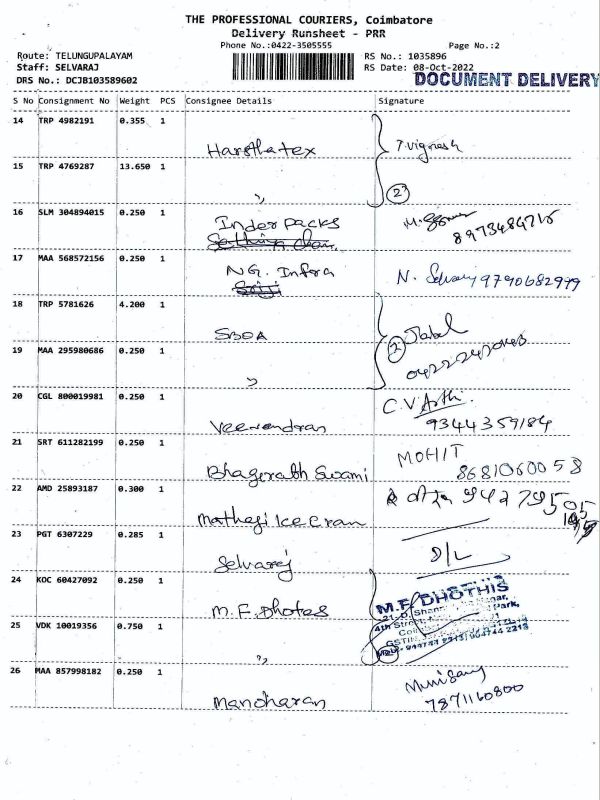 THE PROFESSIONAL COURIERS, Coimbatore
Delivery Runsheet - PRR
Phone No.:0422-3505555 Page No.:2
Route: TELUNGUPALAYAM RS No.: 1035896
Staff: SELVARAJ RS Date: 08-Oct-2022
DRS No.: DCJB103589602 DOCUMENT DELIVERY
S No Consignment No Weight PCS Consignee Details Signature
14 TRP 4982191 0.355 1
Harsthatex T. Vignesh
15 TRP 4769287 13.650 1
" 2
16 SLM 304894015 0.250 1
Inder packs 8973484715
17 MAA 568572156 0.250 1
NG. Infra N. Selvaraj 9790682999
18 TRP 5781626 4.200 1
SBOA 2
19 MAA 295980686 0.250 1
"
20 CGL 800019981 0.250 1
Veerendran C.V Arthi
9344359184
21 SRT 611282199 0.250 1
Bhagirabh Swami MOHIT
8681060058
22 AMD 25893187 0.300 1
Mathaji Ice Cream
23 PGT 6307229 0.285 1
Selvaraj D/L
24 KOC 60427092 0.250 1
M.F. Dhotes M.F. DHOTHIS
25 VDK 10019356 0.750 1
"
26 MAA 857998182 0.250 1
Manoharan 7871160800